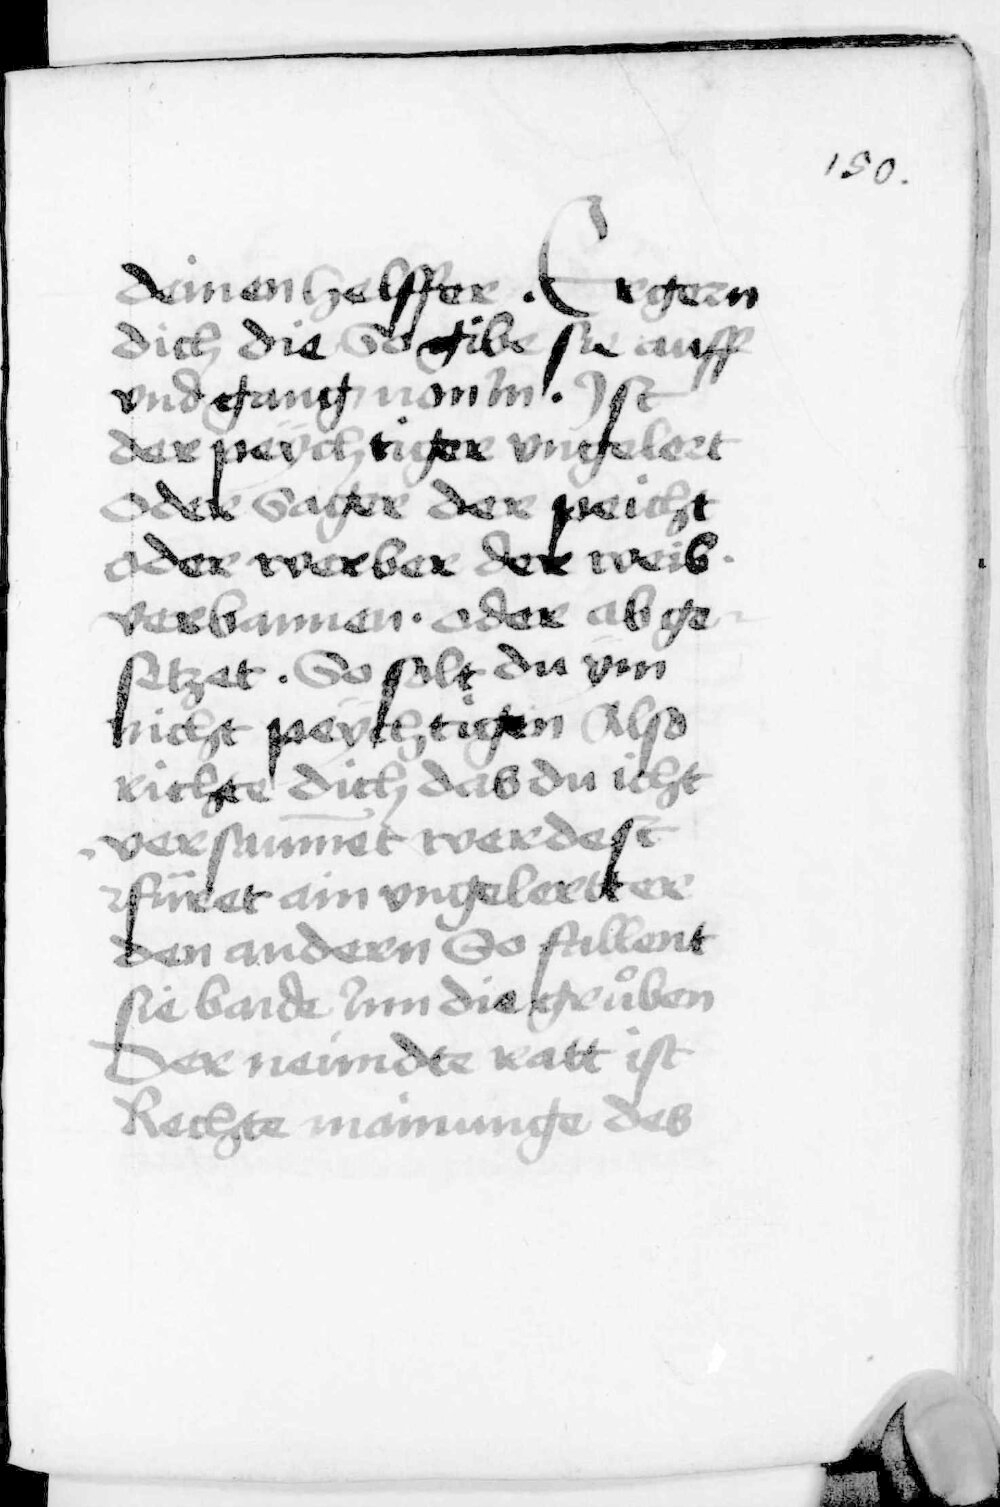 150.
deinen helffer . Ergern
dich die So gibe sie auff
vnd gang von in . Ist
der peÿchtiger vngelert
oder sager der peicht
oder werber der weib .
verbannen . oder abge
setzet . So solt du ym
nicht peÿchtigen Also
richte dich das du icht
versaum̄et werdest
füret ain vngelertter
den andern So fallent
sie baide Inn die grůben
Der neundte ratt ist
Rechte mainunge des